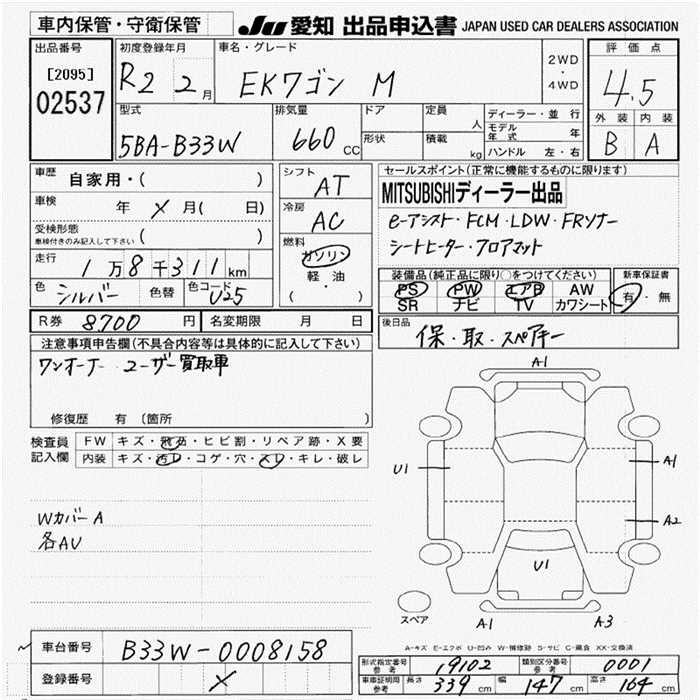 車内保管・守衛保管
JU 愛知 出品申込書 JAPAN USED CAR DEALERS ASSOCIATION
出品番号
[2095]
02537
初度登録年月
R2 2月
車名・グレード
EKワゴン M
2WD
・
4WD
評価点
4.5
外装 内装
B A
型式
5BA-B33W
排気量
660 cc
ドア
形状
定員 人
積載 kg
ディーラー・並行
モデル年式 年
ハンドル 左・右
車歴 自家用・( )
車検 年 × 月( 日)
受検形態
車検付きのみ記入して下さい ( )
走行 1万8千311km
色 シルバー 色替 色コード U25
シフト AT
冷房 AC
燃料
ガソリン
軽・油
( )
セールスポイント(正常に機能するものに限ります)
MITSUBISHIディーラー出品
e-アシスト・FCM・LDW・FRソナー
シートヒーター・フロアマット
装備品(純正品に限り○をつけてください)
PS PW エアB AW
SR ナビ TV カワシート
新車保証書
有・無
R券 8700円 名変期限 月 日
後日品
保・取・スペアキー
注意事項申告欄(不具合内容等は具体的に記入して下さい)
ワンオーナー ユーザー買取車
修復歴 有 (箇所
検査員
記入欄
FW キズ・飛石・ヒビ割・リペア跡・X要
内装 キズ・汚レ・コゲ・穴・スレ・キレ・破レ
Wカバー A
各AU
A1
U1
A1
A2
U1
スペア
A1
A3
A-キズ E-エクボ U-凹み W-補修跡 S-サビ C-腐食 XX-交換済
車台番号 B33W-0008158
登録番号 ×
型式指定番号 参考 19102 類別区分番号 参考 0001
車庫証明用 参考 長さ 339cm 幅 147cm 高さ 164cm